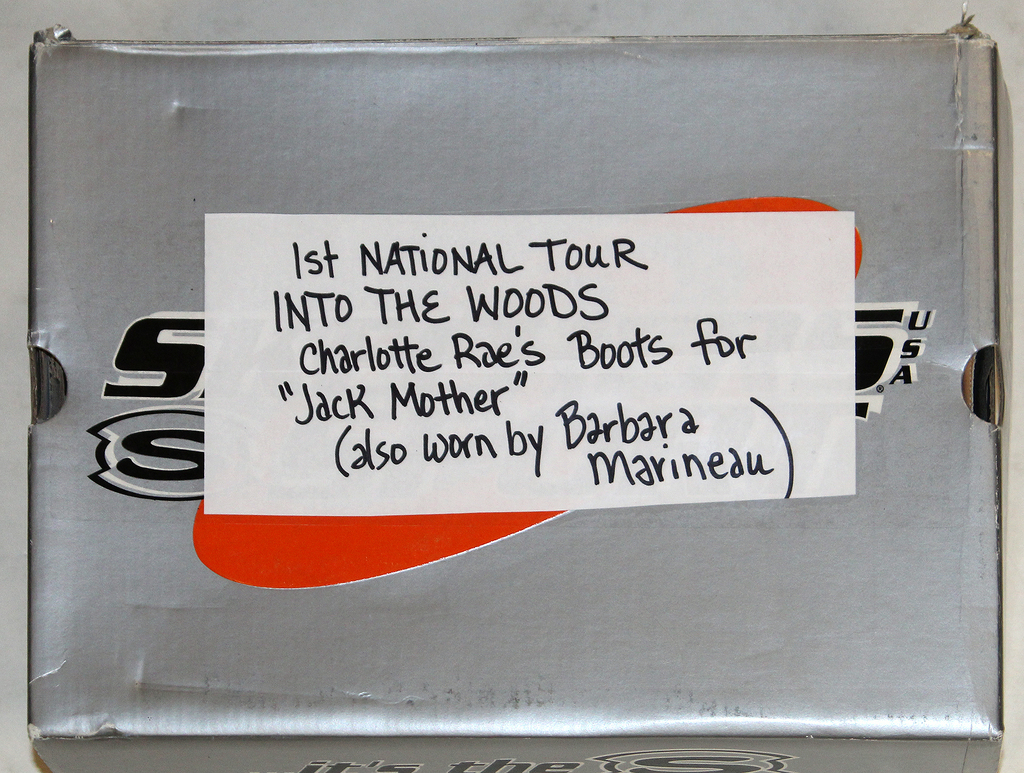 1st NATIONAL TOUR
INTO THE WOODS
Charlotte Rae's Boots for
"Jack Mother"
(also worn by Barbara
Marineau)
USA
S
it's the S